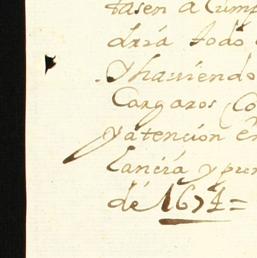 tasen a Cump
dria todo
y haviendo
Cargaros, Co
y atencion en
lancia y pun
de 1674=